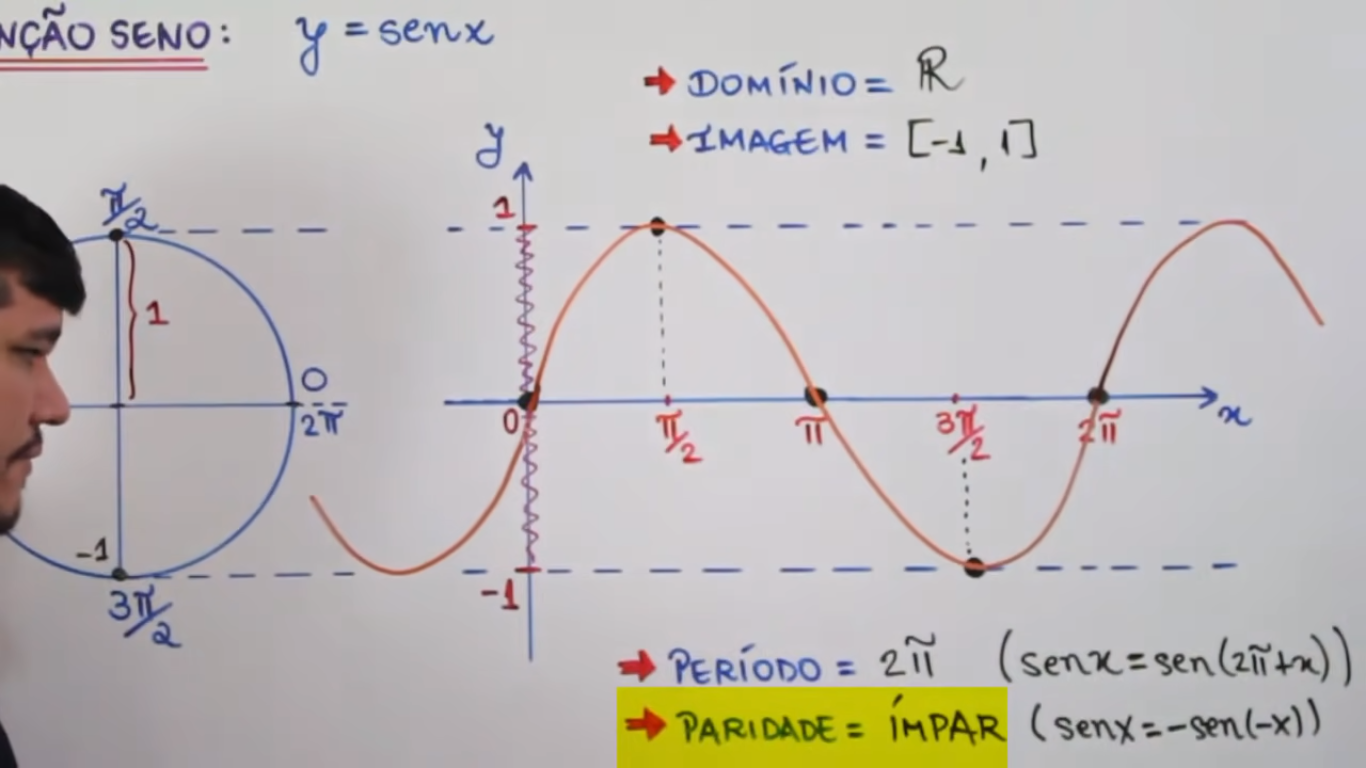 NÇÃO SENO: y = senx
➡ DOMÍNIO = ℝ
➡ IMAGEM = [-1, 1]
y
π/2
1
1
0
2π
0
π/2
π
3π/2
2π
x
-1
3π/2
-1
➡ PERÍODO = 2π (senx = sen(2π+x))
➡ PARIDADE = ÍMPAR (senx = -sen(-x))